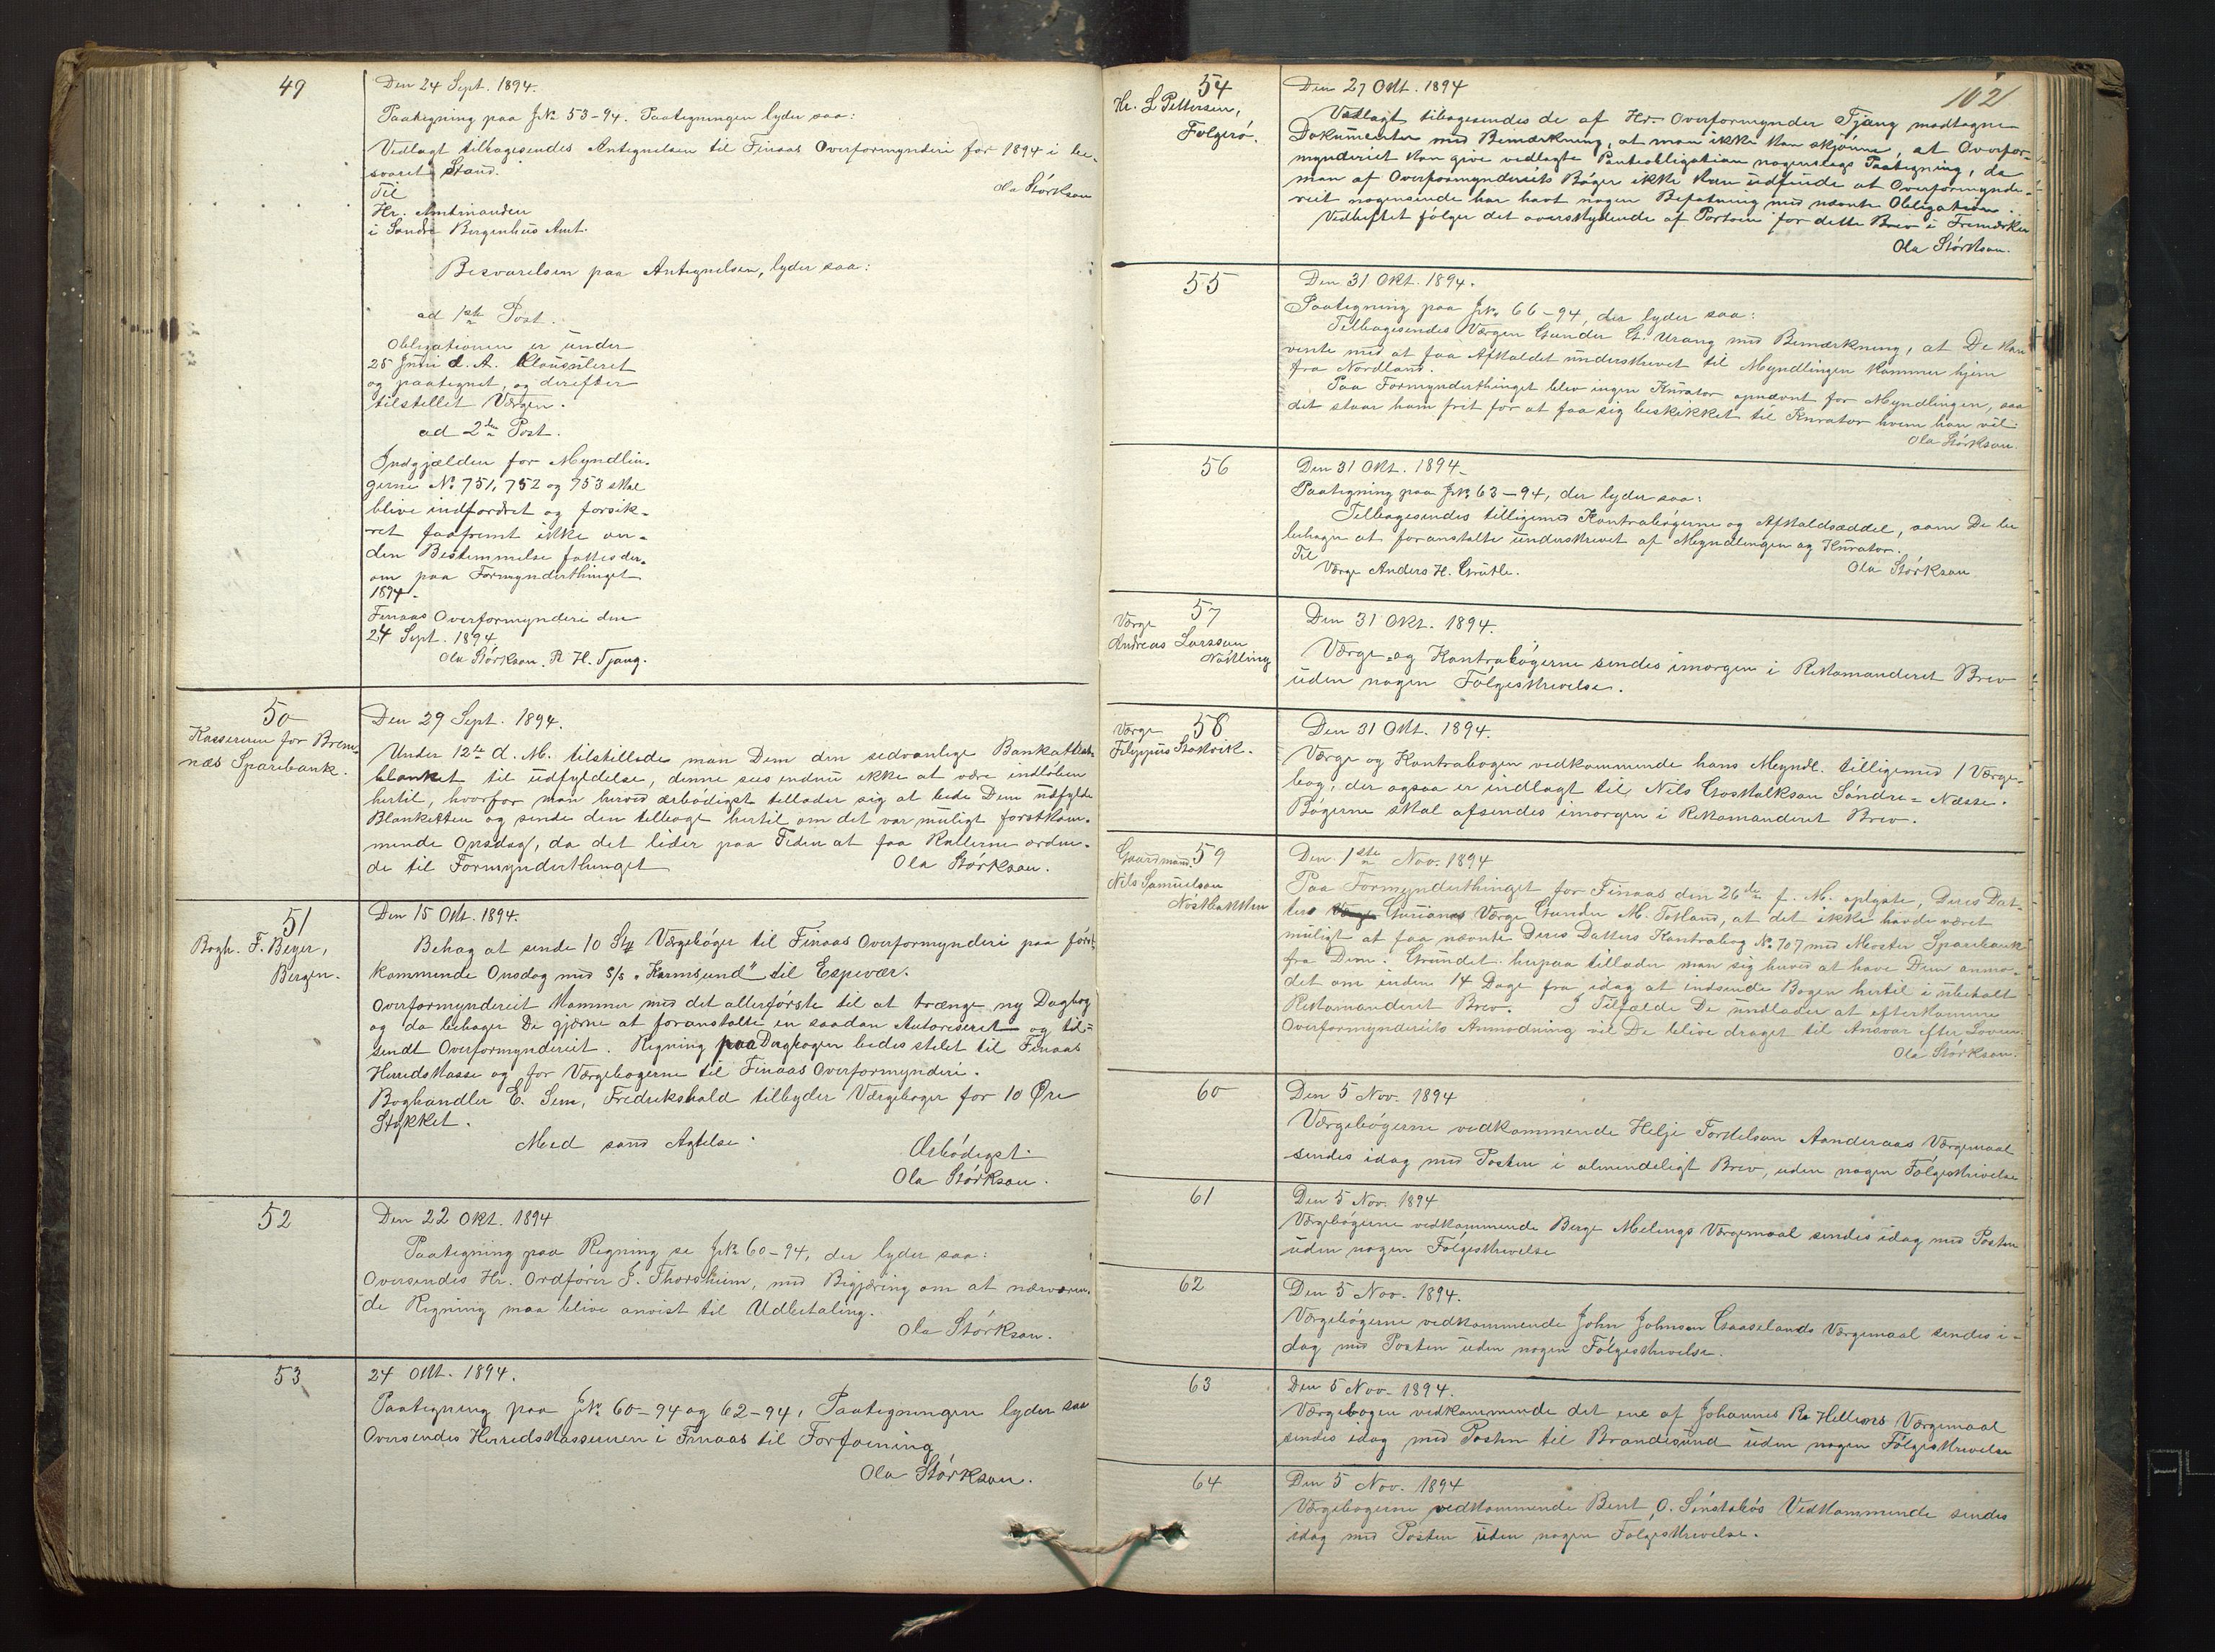 49
Den 24 Sept. 1894.
Paategning paa JNo 53-94. Paategningen lyder saa:
Vedlagt tilbagesendes Antegnelsen til Finaas Overformynderi for 1894 i be-
svaret Stand.
Ola Störkson
Til
Hr. Amtmanden
i Söndre Bergenhus Amt.
Besvarelsen paa Antegnelsen, lyder saa:
ad 1ste Post.
Obligationen er under
25 Juni d. A. klausuleret
og paategnet, og derefter
tilstillet Værgen.
ad 2den Post.
Indgjælden for Myndlin-
gerne No 751, 752 og 753 skal
blive indfordret og forsik-
ret saafremt ikke an-
den Bestemmelse fattes der-
om paa Formynderthinget
1894.
Finaas Overformynderi den
24 Sept. 1894
Ola Störkson. R. H. Tjang.
50
Kassereren for Brem-
næs Sparebank.
Den 29 Sept. 1894.
Under 12te d. M. tilstillede man Dem den sedvanlige Bankattest-
blanket til Udfyldelse, denne sees endnu ikke at være indlöben
hertil, hvorfor man herved ærbödigst tillader sig at bede Dem udfylde
Blanketten og sende den tilbage hertil om det var muligt förstkom-
mende Onsdag, da det lider paa Tiden at faa Rullerne ordne-
de til Formynderthinget
Ola Störkson.
51
Bogh. F. Beyer,
Bergen.
Den 15 Okt. 1894.
Behag at sende 10 Stk Værgeböger til Finaas Overformynderi paa först-
kommende Onsdag med S/S „Karmsund" til Espevær.
Overformynderiet kommer med det allerförste til at trænge ny Dagbog
og da behager De gjerne at foranstalte en saadan Autoriseret og til-
sendt Overformynderiet. Regning paa Dagbogen bedes stilet til Finaas
Herredskasse og for Værgebogerne til Finaas Overformynderi.
Boghandler E. Sem, Fredrikshald tilbyder Værgeboger for 10 Öre
Stykket.
Med sand Agtelse
Ærbödigst
Ola Störkson.
52
Den 22 Okt. 1894
Paategning paa Regning se JNo 60-94, der lyder saa:
Oversendes Hr. Ordförer J. Thorsheim, med Begjæring om at nærværen-
de Regning maa blive anvist til Udbetaling.
Ola Störkson.
53
24 Okt. 1894.
Paategning paa JNo 60-94 og 62-94, Paategningen lyder saa
Oversendes Herredskassereren i Finaas til Forföining
Ola Störkson.
102
54
Hr. L. Pettersen,
Folgerö.
Den 27 Okt. 1894
Vedlagt tilbagesendes de af Hr. Overformynder Tjang modtagne
Dokumenter med Bemærkning, at man ikke kan skjönne, at Overfor-
mynderiet kan give vedlagte Panteobligation nogenslags Paategning, da
man af Overformynderiets Böger ikke kan udfinde at Overformynde-
riet nogensinde har havt nogen Befatning med nævnte Obligation.
Vedheftet fölger det overskydende af Portoen for dette Brev i Frimærker
Ola Störkson.
55
Den 31 Okt. 1894.
Paategning paa JNo 66-94, der lyder saa:
Tilbagesendes Værgen Gunder G. Urang med Bemærkning, at De kan
vente med at faa Afkaldet underskrevet til Myndlingen kommer hjem
fra Nordland.
Paa Formynderthinget blev ingen Kurator opnævnt for Myndlingen, saa
det staar ham frit for at faa sig beskikket til Kurator hvem han vil.
Ola Störkson.
56
Den 31 Okt. 1894.
Paategning paa JNo 63-94, der lyder saa:
Tilbagesendes tilligemed Kontrabögerne og Afkaldsæddel, som De be
behager at foranstalte underskrevet af Myndlingen og Kurator.
Til
Ola Störkson
Værge Anders H. Grutle.
57
Værge
Andreas Larsson
Nötling
Den 31 Okt. 1894.
Værge og Kontrabögerne sendes imorgen i Rekomanderet Brev
uden nogen Fölgeskrivelse.
58
Værge
Filippus Stokvik.
Den 31 Okt. 1894.
Værge og Kontrabogen vedkommende hans Myndl. tilligemed 1 Værge-
bog, der ogsaa er indlagt til Nils Goskalkson Söndre-Næsse.
Bögerne skal afsendes imorgen i Rekomanderet Brev.
59
Gaardmand
Nils Samuelson
Nostbakken
Den 1ste Nov. 1894
Paa Formynderthinget for Finaas den 26de f. M. oplyste, Deres Dat-
ters Værge Gunder M. Totland, at det ikke havde været
muligt at faa nævnte Deres Datters Kontrabog No 707 med Moster Sparebank
fra Dem. Grundet herpaa tillader man sig herved at have Dem anmo-
det om inden 14 Dage fra idag at indsende Bogen hertil i ubetalt
Rekomanderet Brev. I Tilfælde De undlader at efterkomme
Overformynderiets Anmodning vil De blive draget til Ansvar efter Loven.
Ola Störkson.
60
Den 5 Nov. 1894
Værgebögerne vedkommende Helje Torkelson Aanderaas Værgemaal
sendes idag med Posten i almindeligt Brev, uden nogen Fölgeskrivelse
61
Den 5 Nov. 1894
Værgebögerne vedkommende Berge Melings Værgemaal sendes idag med Posten
uden nogen Fölgeskrivelse
62
Den 5 Nov. 1894.
Værgebögerne vedkommende John Johnson Gaaselands Værgemaal sendes i-
dag med Posten uden nogen Fölgeskrivelse.
63
Den 5 Nov. 1894.
Værgebogen vedkommende det ene af Johannes R. Hellens Værgemaal
sendes idag med Posten til Brandesund uden nogen Fölgeskrivelse
64
Den 5 Nov. 1894
Værgebogerne vedkommende Bent O. Vedkommende sendes
idag med Posten uden nogen Folgeskrivelse.